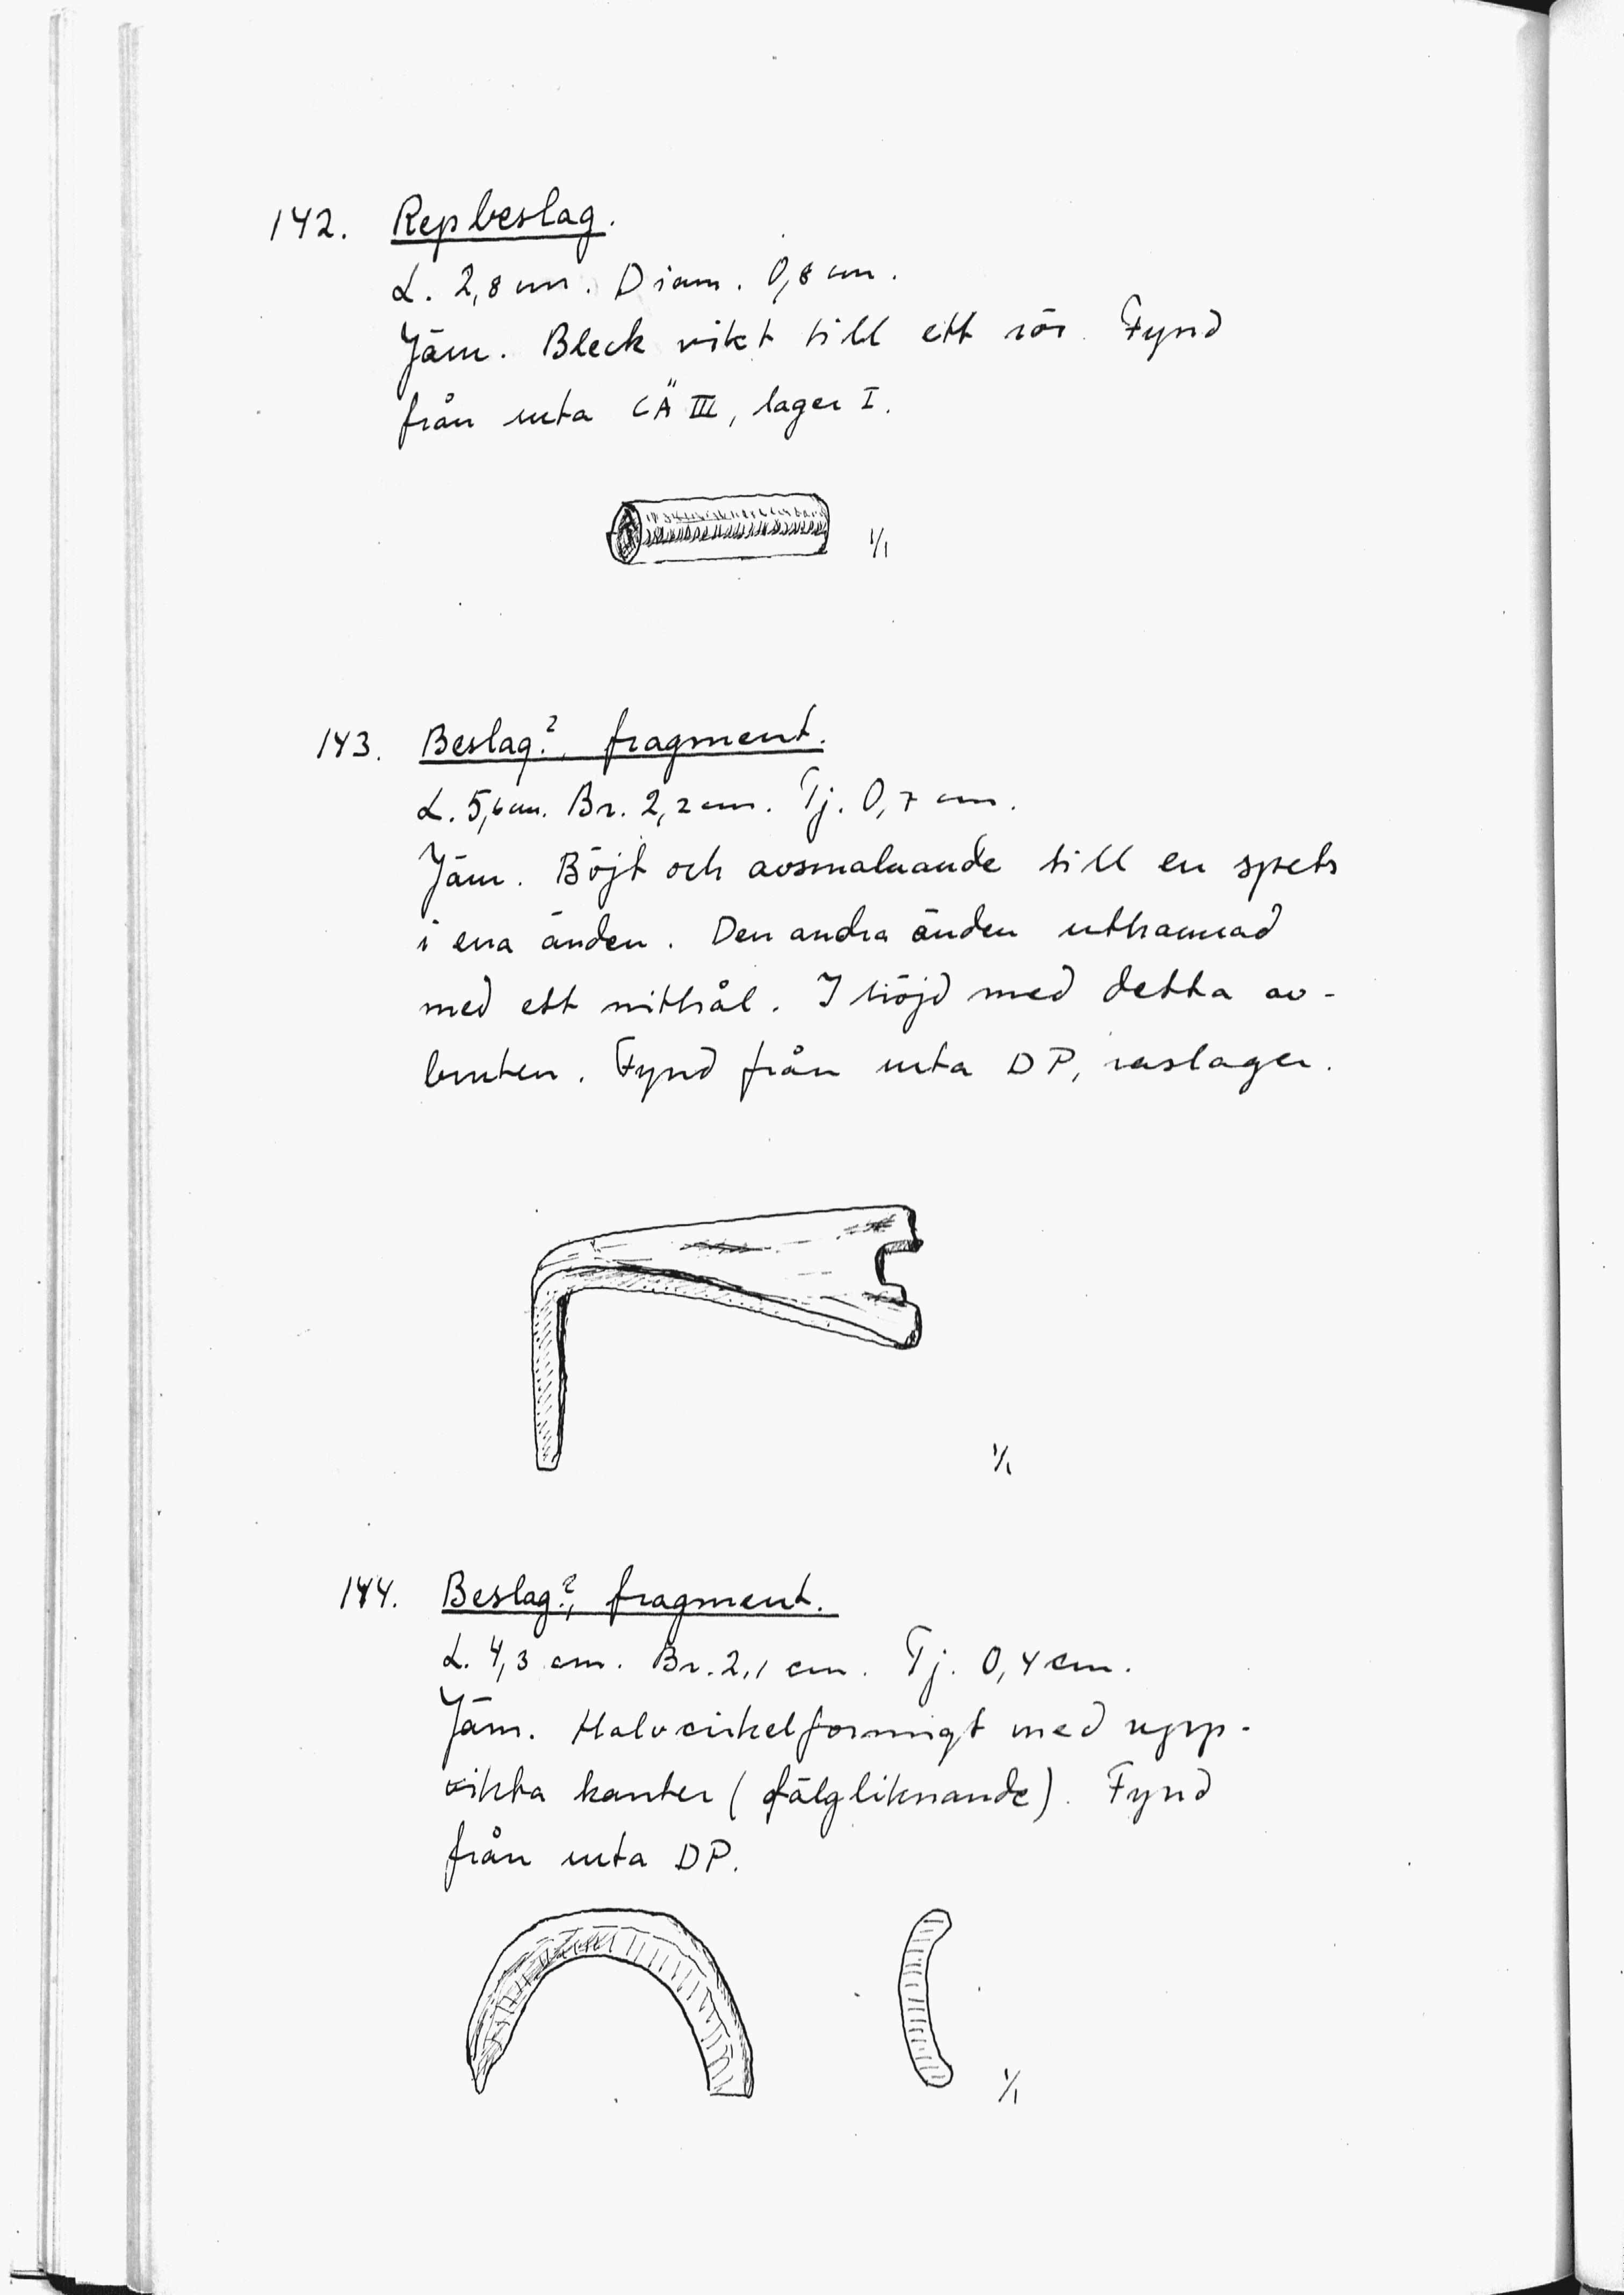 142. Repbeslag.
L. 2,8 cm. Diam. 0,8 cm.
Järn. Bleck vikt till ett rör. Fynd
från ruta CÄ III, lager I.
1/1
143. Beslag?, fragment.
L. 5,6 cm. Br. 2,2 cm. Tj. 0,7 cm.
Järn. Böjt och avsmalnande till en spets
i ena änden. Den andra änden uthamrad
med ett nithål. I höjd med detta av-
bruten. Fynd från ruta DP, raslager.
1/1
144. Beslag?, fragment.
L. 4,3 cm. Br. 2,1 cm. Tj. 0,4 cm.
Järn. Halvcirkelformigt med upp-
vikta kanter (fälgliknande). Fynd
från ruta DP.
1/1